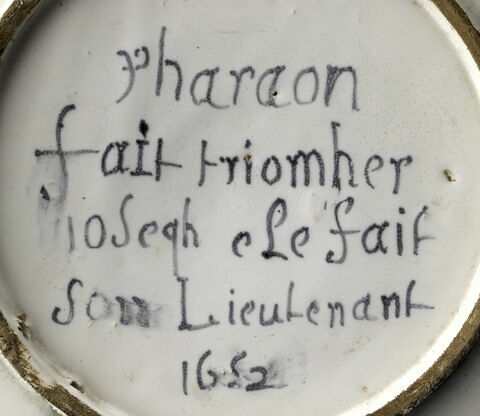 Pharaon
fait triomher
ioseqh e le fait
son Lieutenant
1652